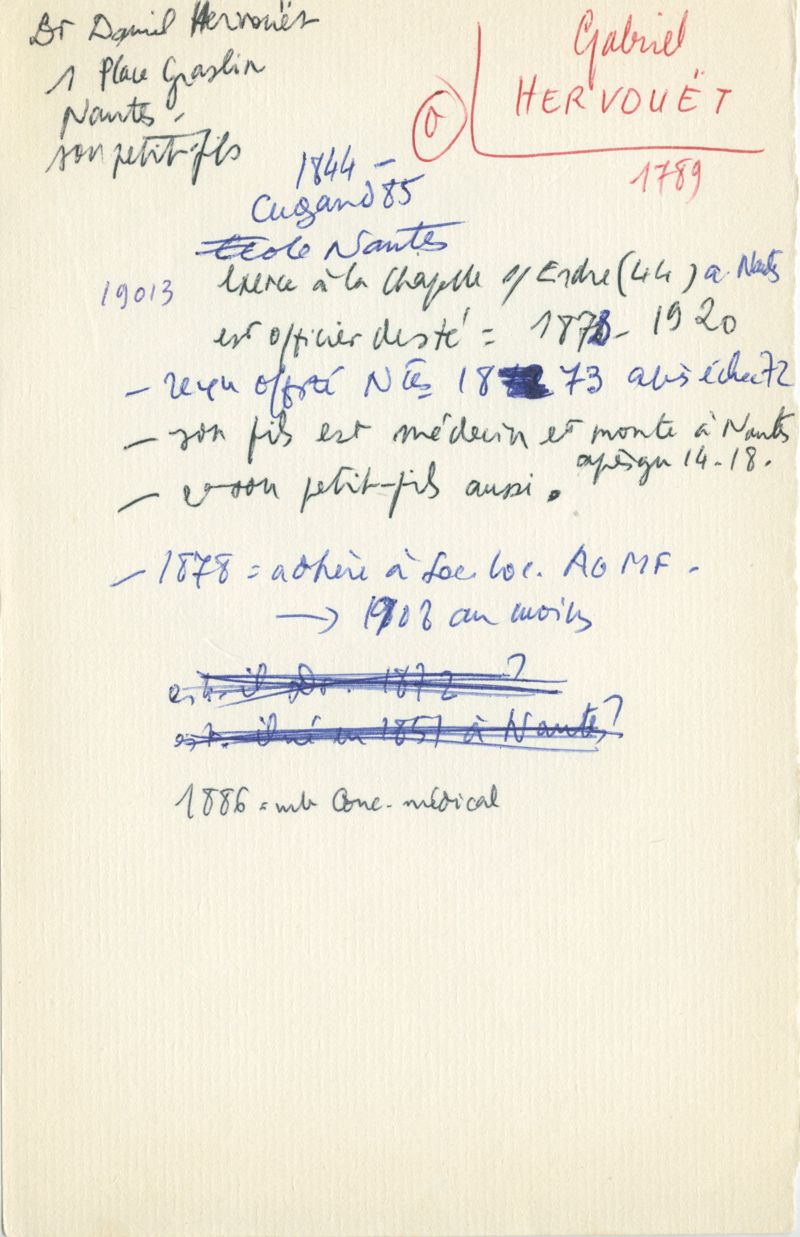 Dr Daniel Hervouët
1 Place Graslin
Nantes -
son petit-fils
Gabriel
HERVOUËT
O
1789
1844 -
Cugand 85
Ecole Nantes
19013
Exerce à la Chapelle s/ Erdre (44) a Nantes
est officier de sté = 1873 - 1920
- reçu off sté Ntes 18 73 après échec 72
- son fils est médecin et monte à Nantes
après gu 14-18.
- et son petit-fils aussi.
- 1878 = adhère à Soc. loc. AGMF -
→ 1908 au moins
est-il 1872 ?
est-il né en 1851 à Nantes ?
1886 = mb Conc. médical